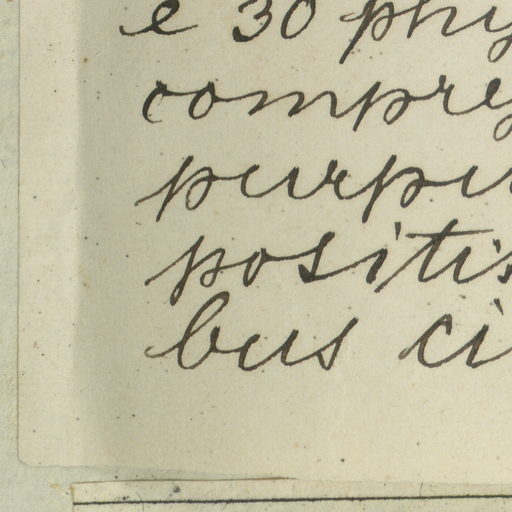 e 30 phy
compre
purpu
positi
bus ci